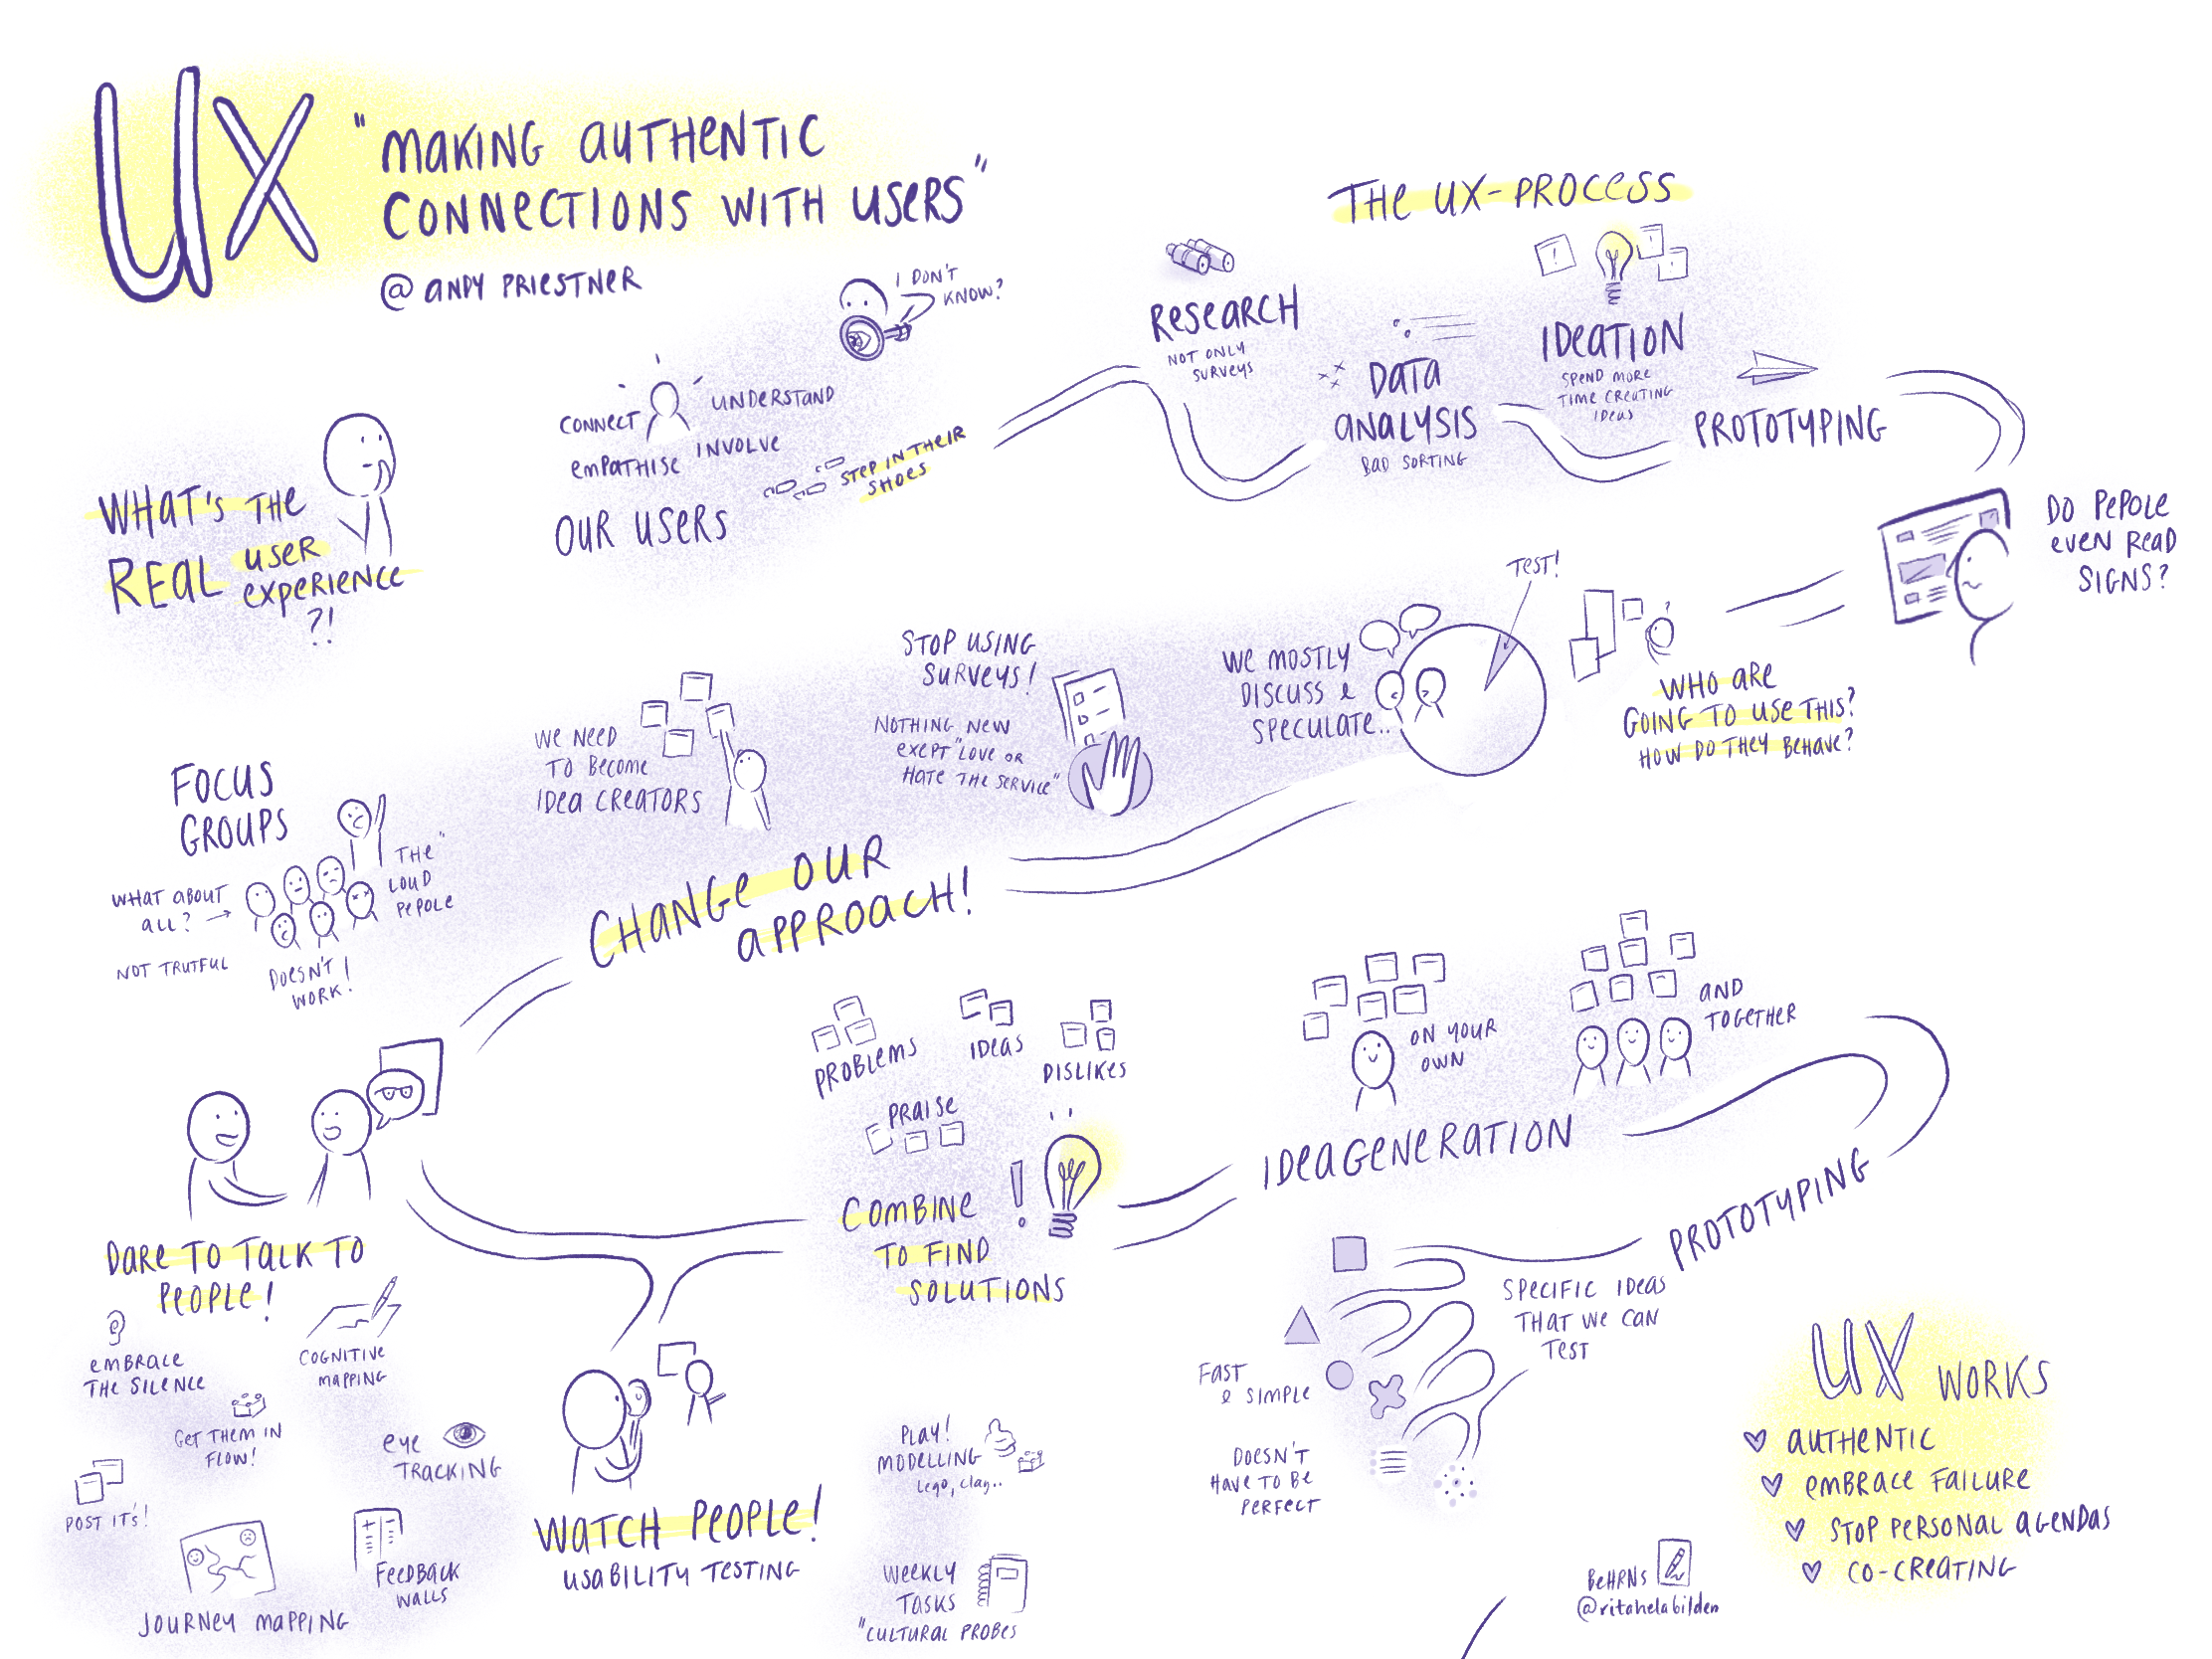 UX
"MAKING AUTHENTIC
CONNECTIONS WITH USERS"
@ ANDY PRIESTNER
WHAT'S THE
REAL USER
EXPERIENCE
?!
I DON'T
KNOW?
CONNECT
UNDERSTAND
EMPATHISE
INVOLVE
OUR USERS
STEP IN THEIR
SHOES
THE UX-PROCESS
RESEARCH
NOT ONLY
SURVEYS
DATA
ANALYSIS
BAD SORTING
IDEATION
SPEND MORE
TIME CREATING
IDEAS
PROTOTYPING
DO PEPOLE
EVEN READ
SIGNS?
WHO ARE
GOING TO USE THIS?
HOW DO THEY BEHAVE?
TEST!
WE MOSTLY
DISCUSS &
SPECULATE..
STOP USING
SURVEYS!
NOTHING NEW
EXEPT "LOVE OR
HATE THE SERVICE"
WE NEED
TO BECOME
IDEA CREATORS
CHANGE OUR
APPROACH!
FOCUS
GROUPS
THE "
LOUD
PEPOLE
WHAT ABOUT
ALL? →
NOT TRUTFUL
DOESN'T
WORK!
DARE TO TALK TO
PEOPLE!
EMBRACE
THE SILENCE
COGNITIVE
MAPPING
GET THEM IN
FLOW!
EYE
TRACKING
POST IT'S!
JOURNEY MAPPING
FEEDBACK
WALLS
WATCH PEOPLE!
USABILITY TESTING
PLAY!
MODELLING
Lego, clay..
WEEKLY
TASKS
"CULTURAL PROBES
PROBLEMS
IDEAS
DISLIKES
PRAISE
COMBINE
TO FIND
SOLUTIONS
!
ON YOUR
OWN
AND
TOGETHER
IDEAGENERATION
PROTOTYPING
SPECIFIC IDEAS
THAT WE CAN
TEST
FAST
& SIMPLE
DOESN'T
HAVE TO BE
PERFECT
UX WORKS
AUTHENTIC
EMBRACE FAILURE
STOP PERSONAL AGENDAS
CO-CREATING
BEHRNS
@ritahelabilden